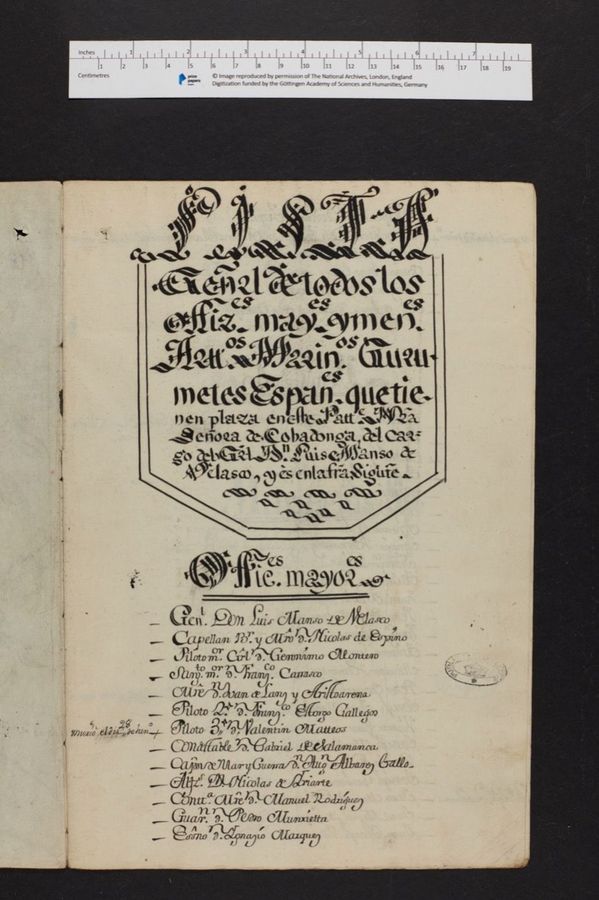 inches 1 2 3 4 5 6 7
1 2 3 4 5 6 7 8 9 10 11 12 13 14 15 16 17 18 19
Centimetres
prize papers
© Image reproduced by permission of The National Archives, London, England
Digitization funded by the Göttingen Academy of Sciences and Humanities, Germany
LISTA
Genrl de todos los
offiz.es may.es y men.es
Artt.os Marin.os Guru-
metes Españ.es que tie-
nen plaza en este Patt.e Nra
Señora de Cobadonga, del car-
go del Grl Dn Luis Manso de
Velasco, y es en la fra Siguте.
Offic.es mayor.es
Gen.l Don Luis Manso de Velasco
Capellan y Nicolas de Espino
Piloto m.or Geronimo Montero
Sarg.to m.or Dn Fran.co Carrasco
Mre Dn Juan de Lanz y Aristoarena
Piloto 2.º Dn Fran.co Gallegos
murio el dia 28 de Jun.º Piloto 3.º Dn Valentin Matteos
Condestable Dn Gabriel de Salamanca
Capn de Mar y Guerra Dn Aug.n Albarez Gallo
Alfz Dn Nicolas de Iriarte
Contra Mre Dn Manuel Rodriguez
Guar.n Dn Pedro Munxietta
Essno Dn Ygnazio Marquez